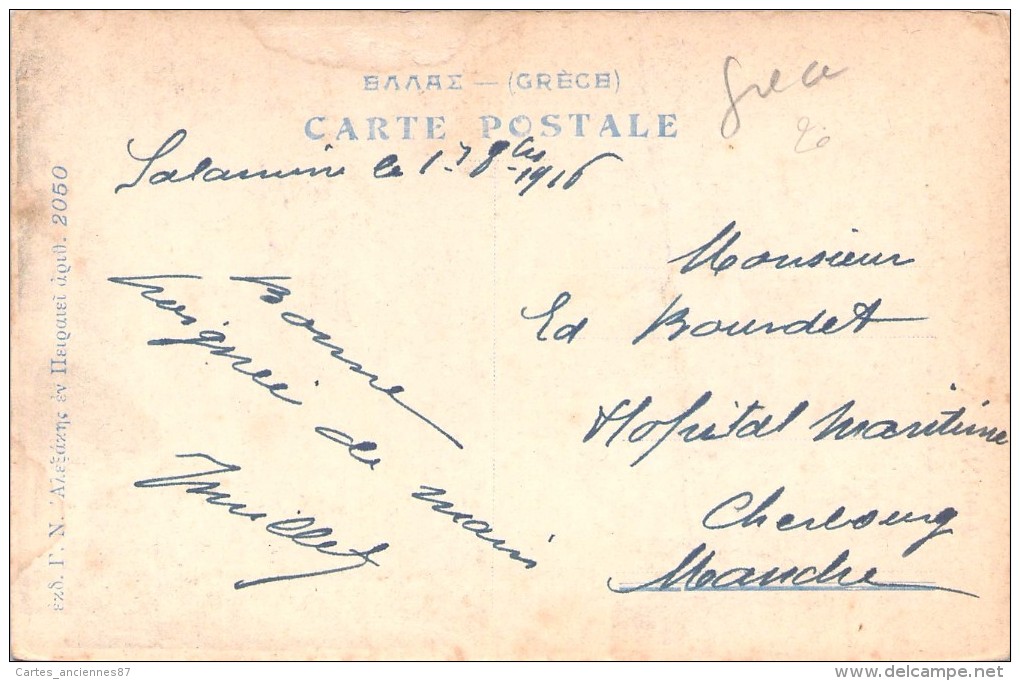 ΕΛΛΑΣ — (GRÈCE)
CARTE POSTALE
Grece
Salamine le 17 8bre 1916
Bonne
Poignée de main
Millet
Monsieur
Ed Bourdet
Hopital Maritime
Cherbourg
Manche
εκδ. Γ. Ν. Αλεξάκης ἐν Πειραιεῖ ἀριθ. 2050
Cartes_anciennes87
www.delcampe.net